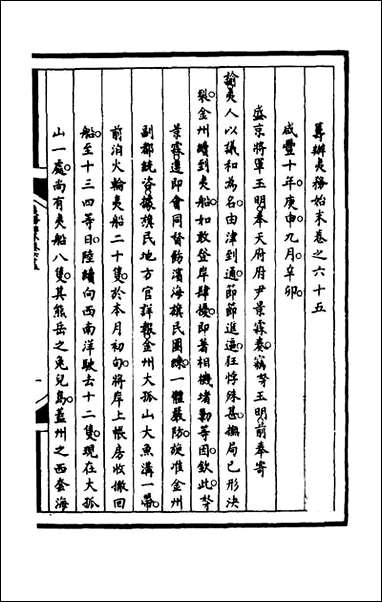 籌辦夷務始末卷之六十五
咸豐十年庚申九月辛卯
盛京將軍玉明奉天府府尹景霖奏竊奴才玉明前奉寄
諭夷人以議和為名由津到通節節進逼狂悖殊甚撫局已形決
裂金州續到夷船如敢登岸肆擾即著相機堵勦等因欽此奴才
景霖遵即會同督飭濱海旗民團練一體嚴防旋准金州
副都統咨據旗民地方官詳報金州大孤山大魚溝一帶
前泊火輪夷船二十隻於本月初旬將岸上帳房收撤回
船至十三四等日陸續向西南洋駛去十二隻現在大孤
山一處尚有夷船八隻其熊岳之兔兒島蓋州之西套海